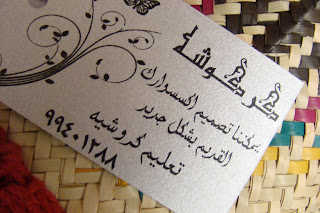 كركوشة
يمكننا تصميم اكسسوارك
القديم بشكل جديد
تعليم كروشيه
٩٩٤٠١٢٨٨